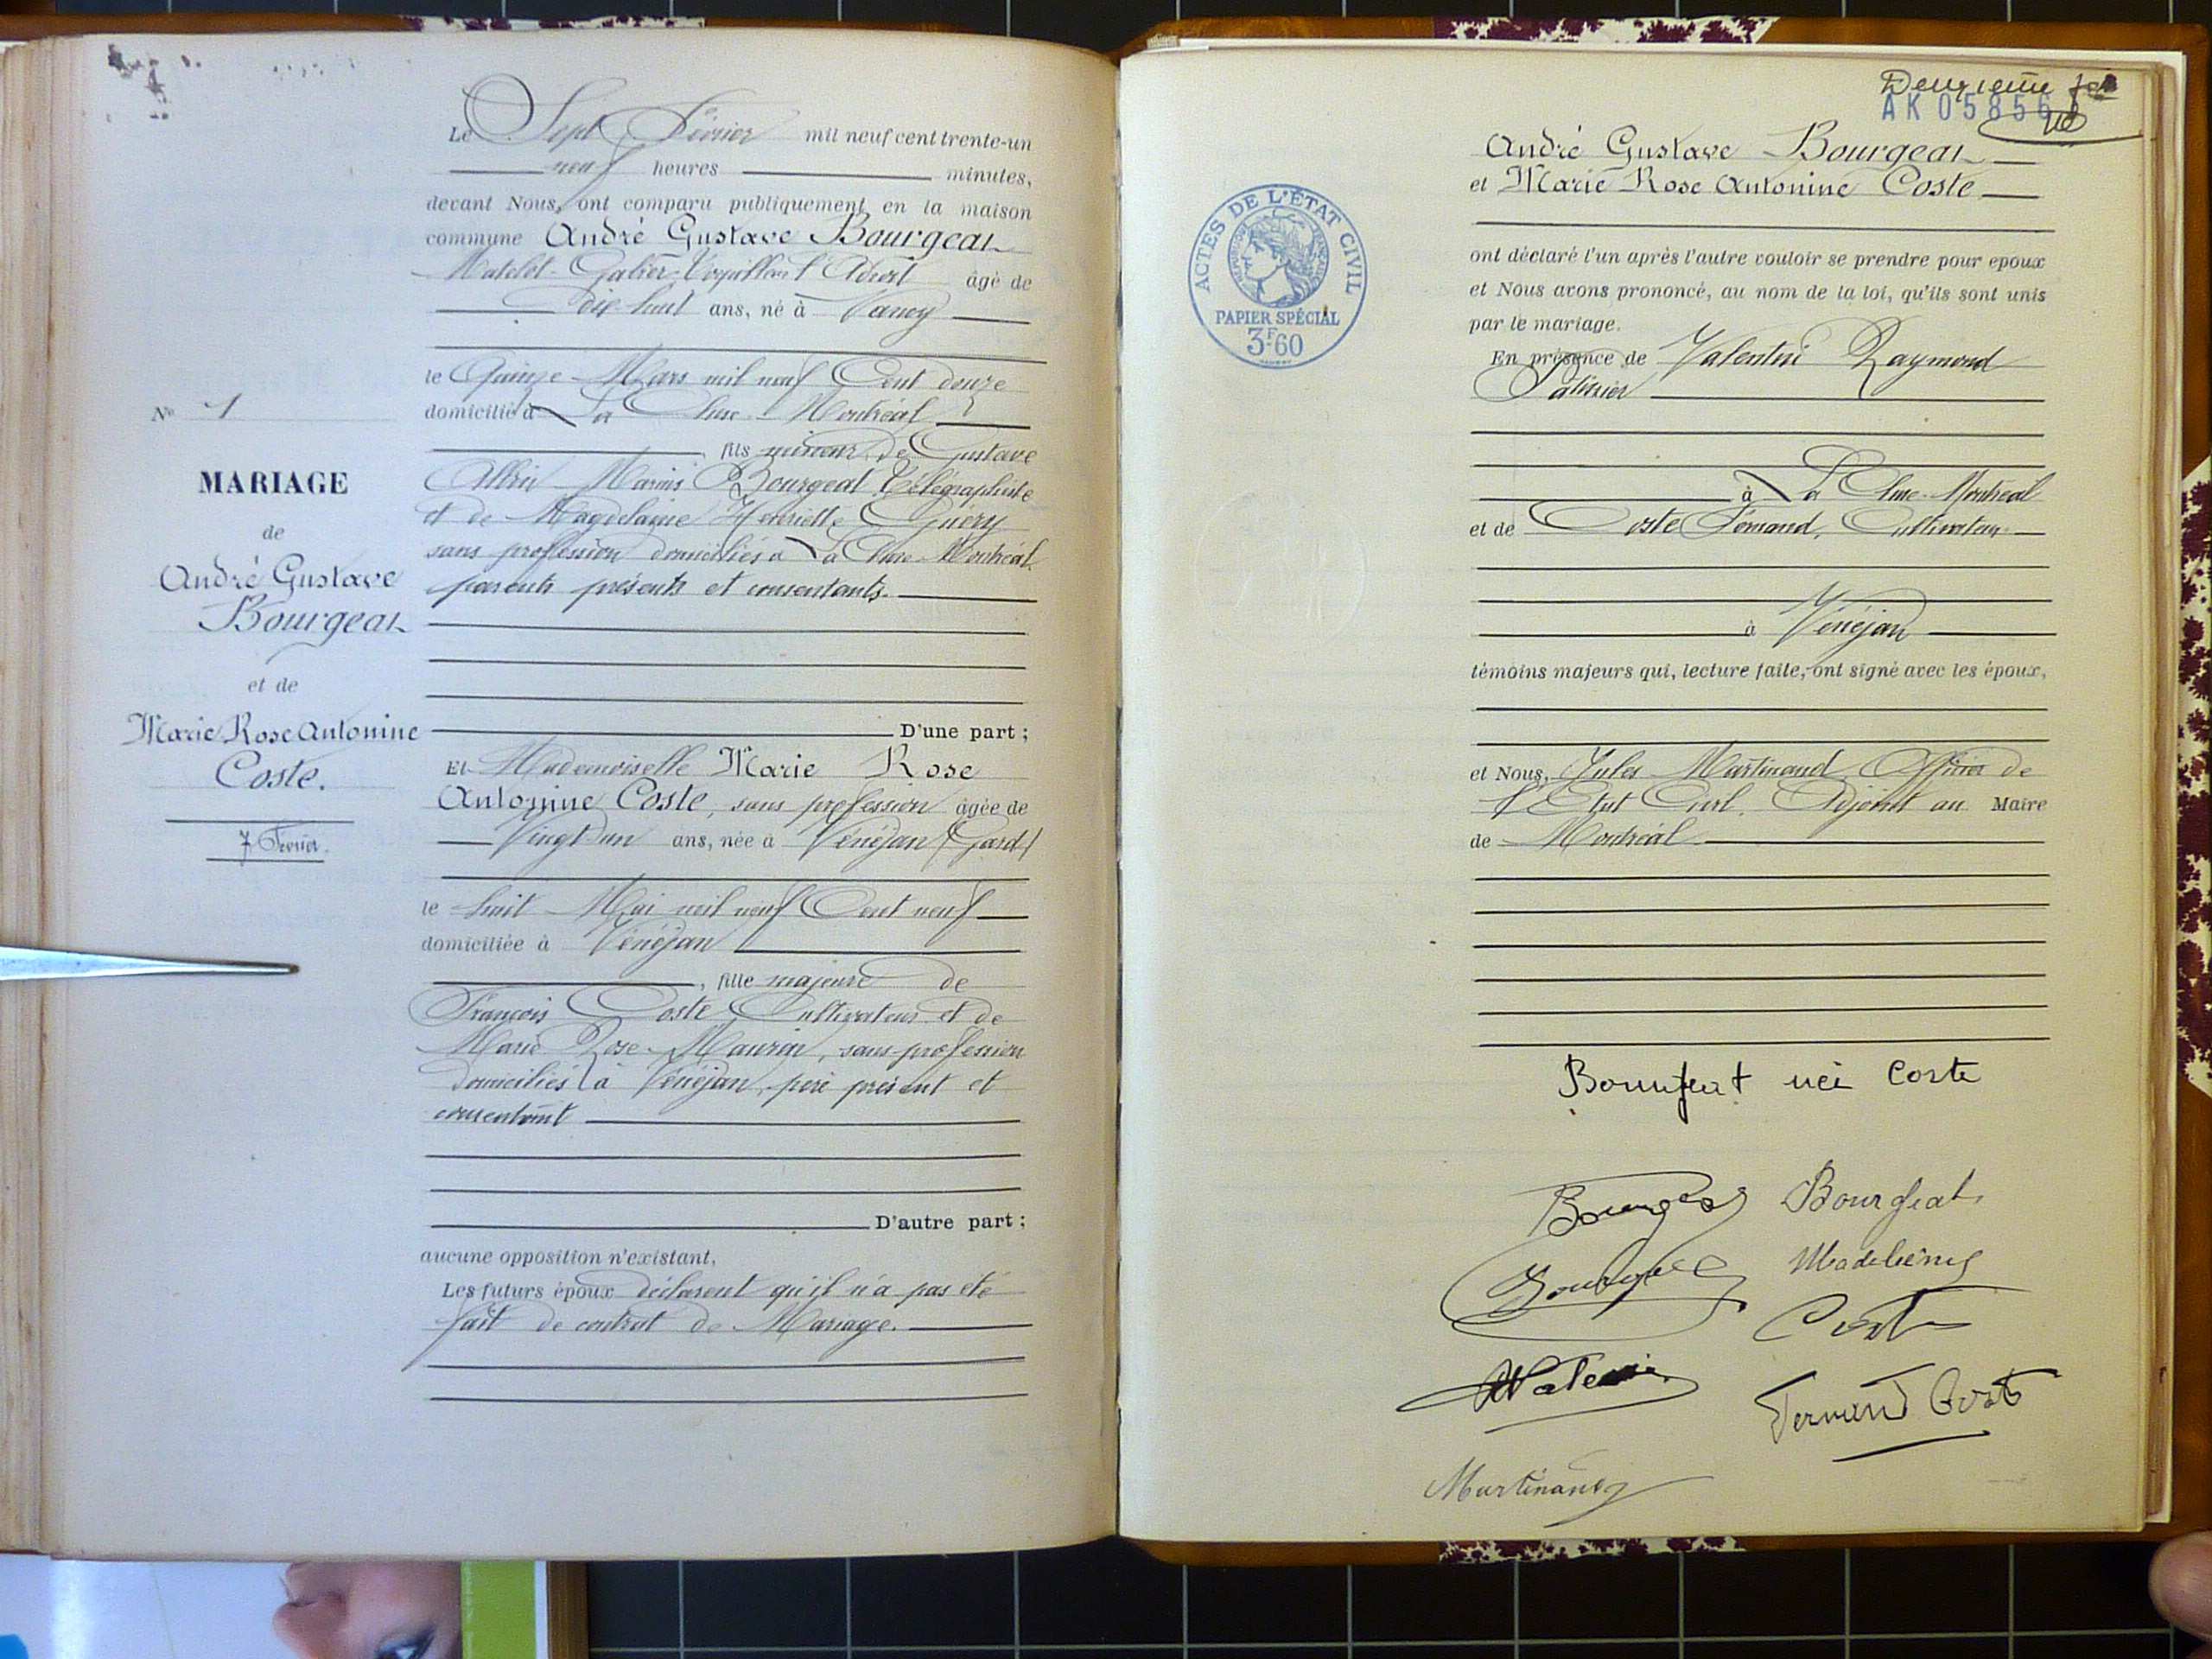 Le Sept Février mil neuf cent trente-un
neuf heures minutes,
devant Nous, ont comparu publiquement en la maison
commune André Gustave Bourgeat
Matelot- âgé de
dix-huit ans, né à Nancy
le Quinze Mars mil neuf Cent douze
domicilié à La Cluse-Montréal
, fils mineur de Gustave
Marius Bourgeat Télégraphiste
et de Magdelaine Henriette Guéry
sans profession domiciliés à La Cluse-Montréal
parents présents et consentants.
D'une part ;
Et Mademoiselle Marie Rose
Antonine Coste, sans profession âgée de
Vingt un ans, née à Vénéjan (Gard)
le huit Mai mil neuf Cent neuf
domiciliée à Vénéjan
, fille majeure de
François Coste Cultivateur et de
Marie Rose Maurin, sans profession
domiciliés à Vénéjan, père présent et
consentant
D'autre part ;
aucune opposition n'existant,
Les futurs époux déclarent qu'il n'a pas été
fait de contrat de Mariage.
No 1
MARIAGE
de
André Gustave
Bourgeat
et de
Marie Rose Antonine
Coste.
7 Février.
Deuxième
AK 05856
ACTES DE L'ÉTAT CIVIL
RÉPUBLIQUE FRANÇAISE
PAPIER SPÉCIAL
3F.60
André Gustave Bourgeat
et Marie Rose Antonine Coste
ont déclaré l'un après l'autre vouloir se prendre pour epoux
et Nous avons prononcé, au nom de la loi, qu'ils sont unis
par le mariage.
En présence de Valentin Raymond
à La Cluse-Montréal
et de Coste Fernand, Cultivateur
à Vénéjan
témoins majeurs qui, lecture faite, ont signé avec les époux,
et Nous, Jules Martinand Officier de
l'Etat Civil, Adjoint au Maire
de Montréal
née Coste
Bourgeat
Bourgeat
Coste
Fernand Coste
Martinand